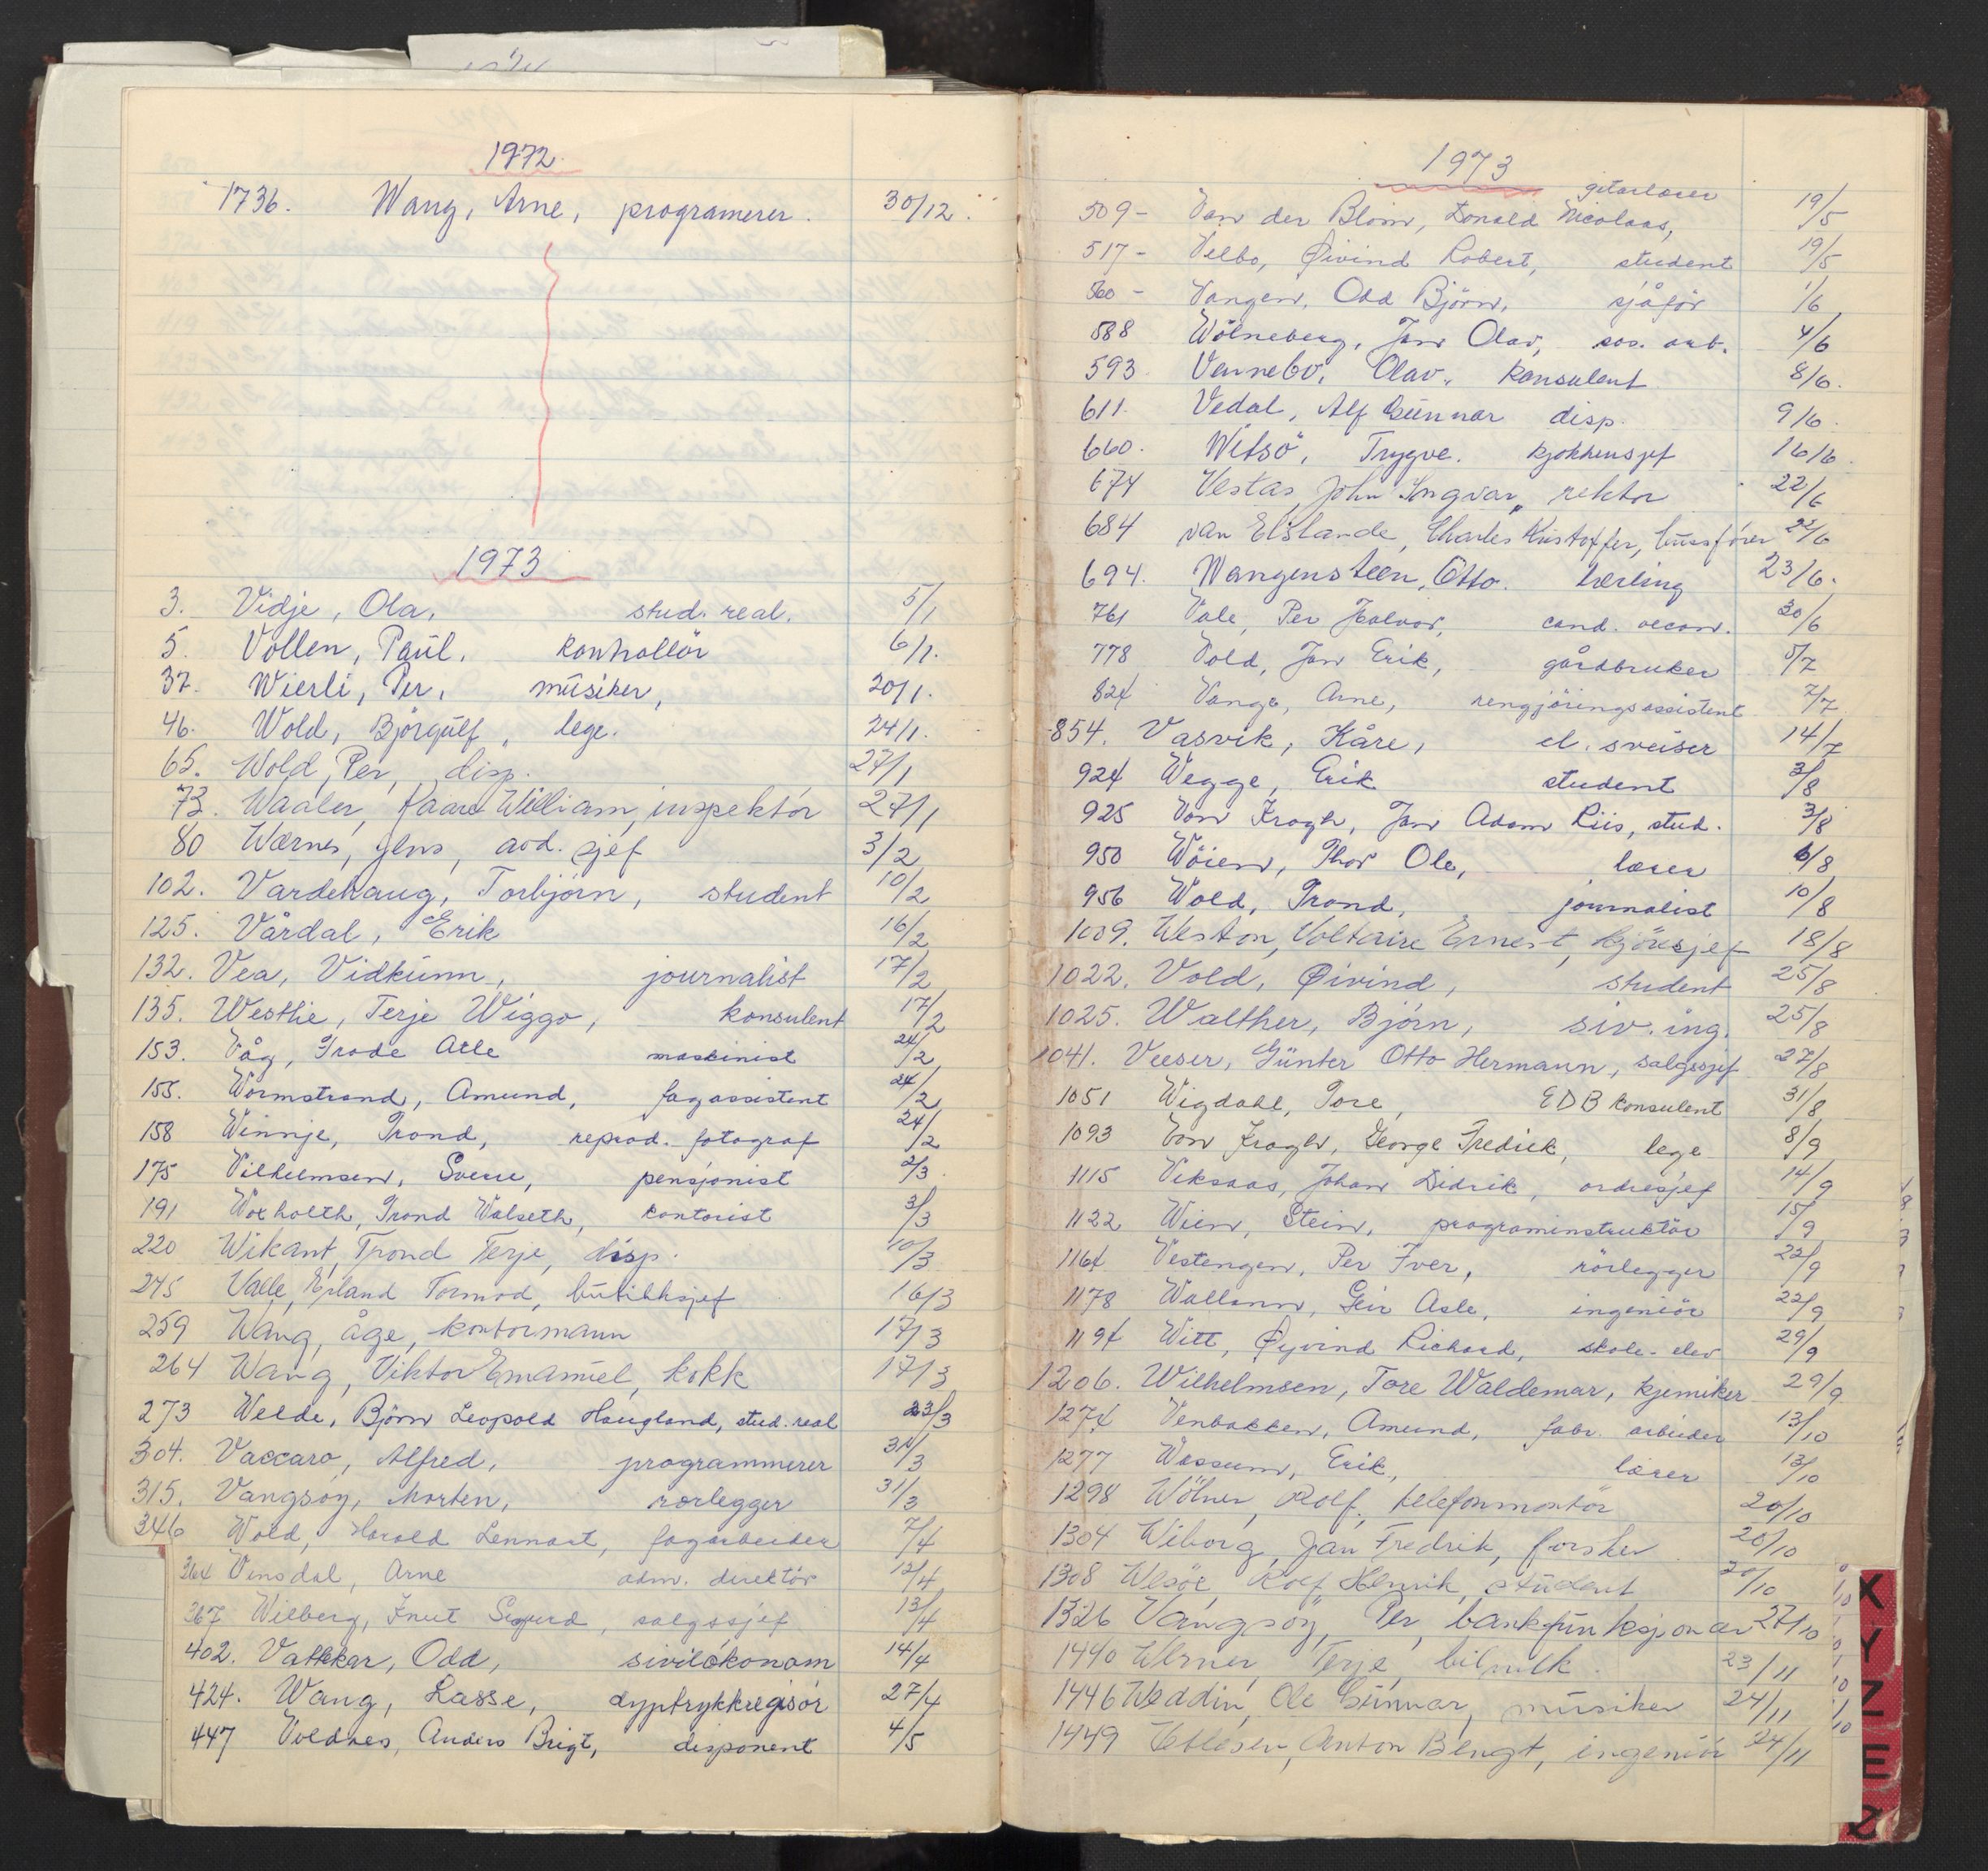 1972.
1736. Wang, Arne, programerer. 30/12.
1973
3. Vidje, Ola, stud. real. 5/1
5. Vollen, Paul. kontrollör 6/1.
37. Wierli, Per, musiker, 20/1.
46. Wold, Björgulf, lege. 24/1.
65. Wold, Per, disp. 27/1
73. Waaler, Kaare William, inspektör 27/1
80 Wærnes, Jens, avd. sjef 3/2
102. Vardehaug, Torbjörn, student 10/2
125. Vårdal, Erik 16/2
132. Vea, Vidkunn, journalist 17/2
135. Westlie, Terje Wiggo, konsulent 17/2
153. Våg, Frode Atle maskinist 24/2
155. Wormstrand, Amund, fagassistent 24/2
158 Winnje, Trond, reprod. fotograf 24/2
175 Vilhelmsen, Sverre, pensjonist 2/3
191 Woxholth, Trond Walseth, kontorist 3/3
220 Wikant, Trond Terje, disp. 10/3
245 Valle, Erland Tormod, butikksjef 16/3
259 Wang, åge, kontormann 17/3
264 Wang, Viktor Emanuel, kokk 17/3
273 Welde, Björn Leopold Haugland, stud. real 23/3
304. Vaccaro, Alfred, programmerer 31/3
315. Vangsöy, Morten, rørlegger 31/3
346 Wold, Harald Lennart, fagarbeider 7/4
364 Vinsdal, Arne adm. direktör 12/4
367 Wilberg, Knut Sigurd, salgssjef 13/4
402. Vattekar, Odd, siviløkonom 14/4
424. Wang, Lasse, dyptrykkregisör 27/4
447 Voldnes, Anders Brigt, disponent 4/5
1973
gitarlærer
509- Van der Blom, Donald Nicolaas, 19/5
517- Velbo, Øivind Robert, student 19/5
560- Vangen, Odd Björn, sjåför 1/6
588 Wölneberg, Jan Olav, sos. arb. 4/6
593. Vennebo, Olav, konsulent 8/6.
611. Vedal, Alf Gunnar disp. 9/6.
660. Witsö, Trygve. kjökkensjef 16/6.
674 Vestas, John Ingvar, rektor 22/6
684 van Elslande, Charles Kristoffer, bussförer 22/6
694. Wangensteen, Otto. Lærling 23/6.
761 Vale, Per Halvor, cand. oecon. 30/6
778 Vold, Jan Erik, gårdbruker 5/7
824 Vange, Arne, rengjöringsassistent 7/7
854. Vasvik, Kåre, el. sveiser 14/7
924 Wegge, Erik student 3/8
925 Von Krogh, Jan Adam Riis, stud. 3/8
950 Wöien, Thor Ole, lærer 6/8
956 Wold, Trond, journalist 10/8
1009. Weston, Voltaire Ernest, kjöresjef 18/8
1022. Vold, Øivind, student 25/8
1025. Walther, Björn, siv. ing. 25/8
1041. Veeser, Günter Otto Hermann, salgssjef 27/8
1051 Wigdahl, Tore, EDB konsulent 31/8
1093 Von Krogh, George Fredrik, lege 8/9
1115 Viksaas, Johan Didrik, ordresjef 14/9
1122 Wien, Stein, programinstruktör 15/9
1164 Vestengen, Per Iver, rörlegger 22/9
1178 Wallann, Geir Asle, ingeniör 22/9
1194 Witt, Øyvind Richard, skole-elev 29/9
1206. Wilhelmsen, Tore Waldemar, kjemiker 29/9
1274 Venbakken, Amund, fabr. arbeider 13/10
1277 Wessum, Erik, lærer 13/10
1298 Wölner, Rolf, telefonmontör 20/10
1304 Wiborg, Jan Fredrik, forsker 20/10
1308 Rolf Henrik, student 20/10
1326 Vangsöy, Per, bankfunksjonær 27/10
1440 Werner, Terje, bilmek. 23/11
1446 Weddin, Ole Gunnar, musiker 24/11
1449 Anton Bengt, ingeniör 24/11
X
Y
Z
Æ
Ø